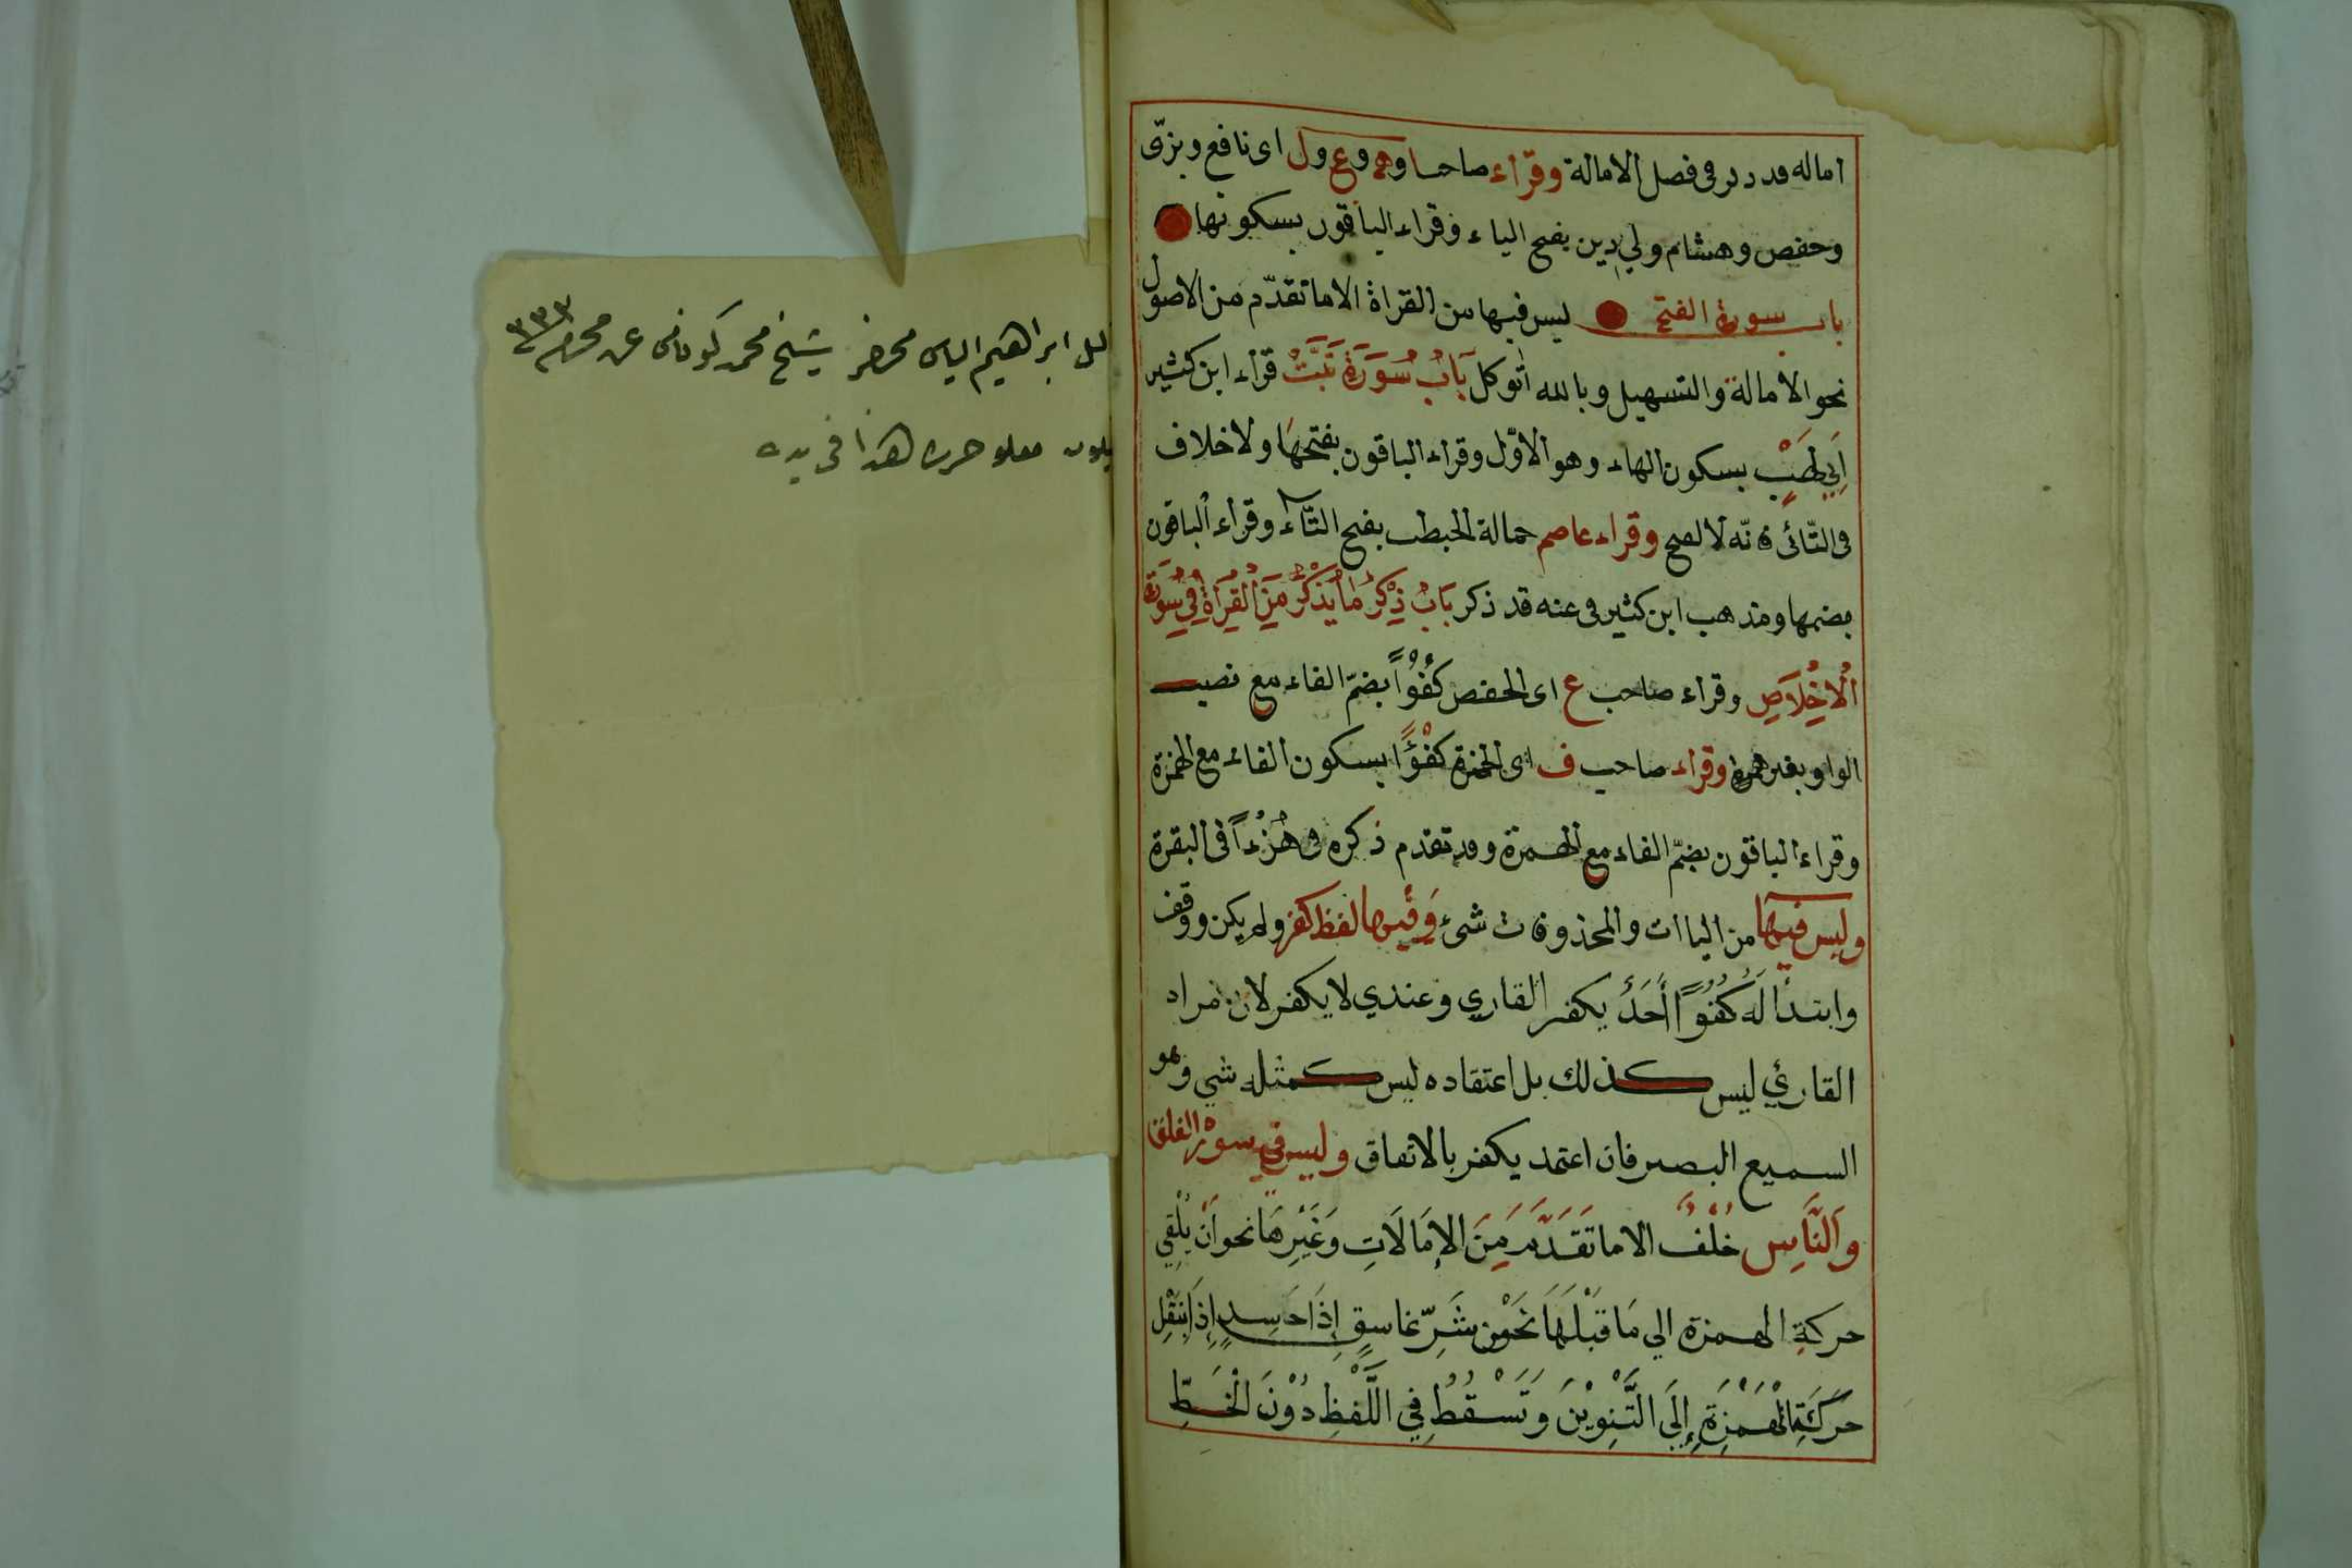 اماله قد ذكر فى فصل الامالة وقراء صاحبا وهم وع ول اى نافع وبزّى
وحفص وهشام ولي دين بفتح الياء وقراء الباقون بسكونها
باب سورة الفتح ليس فيها من القراة الا ما تقدّم من الاصول
نحو الامالة والتسهيل وبالله اتوكل بَابُ سُورَةِ تَبَّتْ قراء ابن كثير
اَبِي لَهْبٍ بسكون الهاء وهو الاوّل وقراء الباقون بفتحها ولا خلاف
فى الثانى فانّه لا لفتح وقراء عاصم حمالة الحطب بفتح التّاء وقراء الباقون
بضمها ومذهب ابن كثير فى عنه قد ذكر بَابُ ذِكْرُ مَا يُذْكَرُ مِنَ الْقِرَاةِ فِي سُورَةِ
الْاِخْلَاصِ وقراء صاحب ع اى الحفص كُفُوًا بضمّ الفاء مع نصب
الواو بغير همزة وقراء صاحب ف اى الحمزة كُفْؤًا بسكون الفاء مع الهمزة
وقراء الباقون بضمّ الفاء مع الهمزة وقد تقدم ذكره فى هُزُءاً فى البقرة
وليس فيها من الياات والمحذوفات شئ وفيها لفظ كفر ولم يكن ووقف
وابتدأ لَهُ كُفُوًا أَحَدٌ يكفر القاري وعندي لا يكفر لان مراد
القارئ ليس كذلك بل اعتقاده ليس كمثله شي وهو
السميع البصير فان اعتمد يكفر بالاتفاق وليس في سورة الفلق
والنَّاسِ خُلْفٌ الا ما تَقَدَّمَ مِنَ الإمَالَاتِ وَغَيْرِهَا نحو اَنْ يُلْقِي
حركةِ الهمزة الي مَا قَبْلَهَا نَحْوَ مِن شَرِّ غاسقٍ إِذَا حَاسِدٍ إِذَا بِنَقْلِ
حَرَكَةِ الْهَمْزَةِ إِلَى التَّنْوِيْنَ وَتَسْقُطُ فِي اللَّفْظِ دُوْنَ الْخَطِّ
ابراهيم الياس محضر شيخ محمد عن محرم ٣٣٣
هذا فى يده